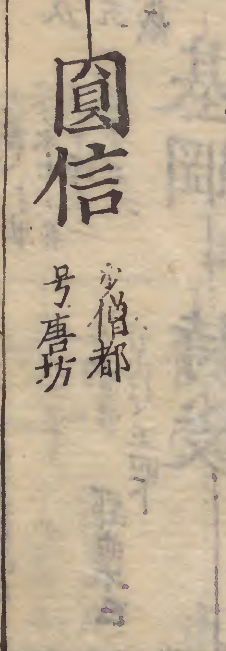 圓信
少僧都
号唐坊